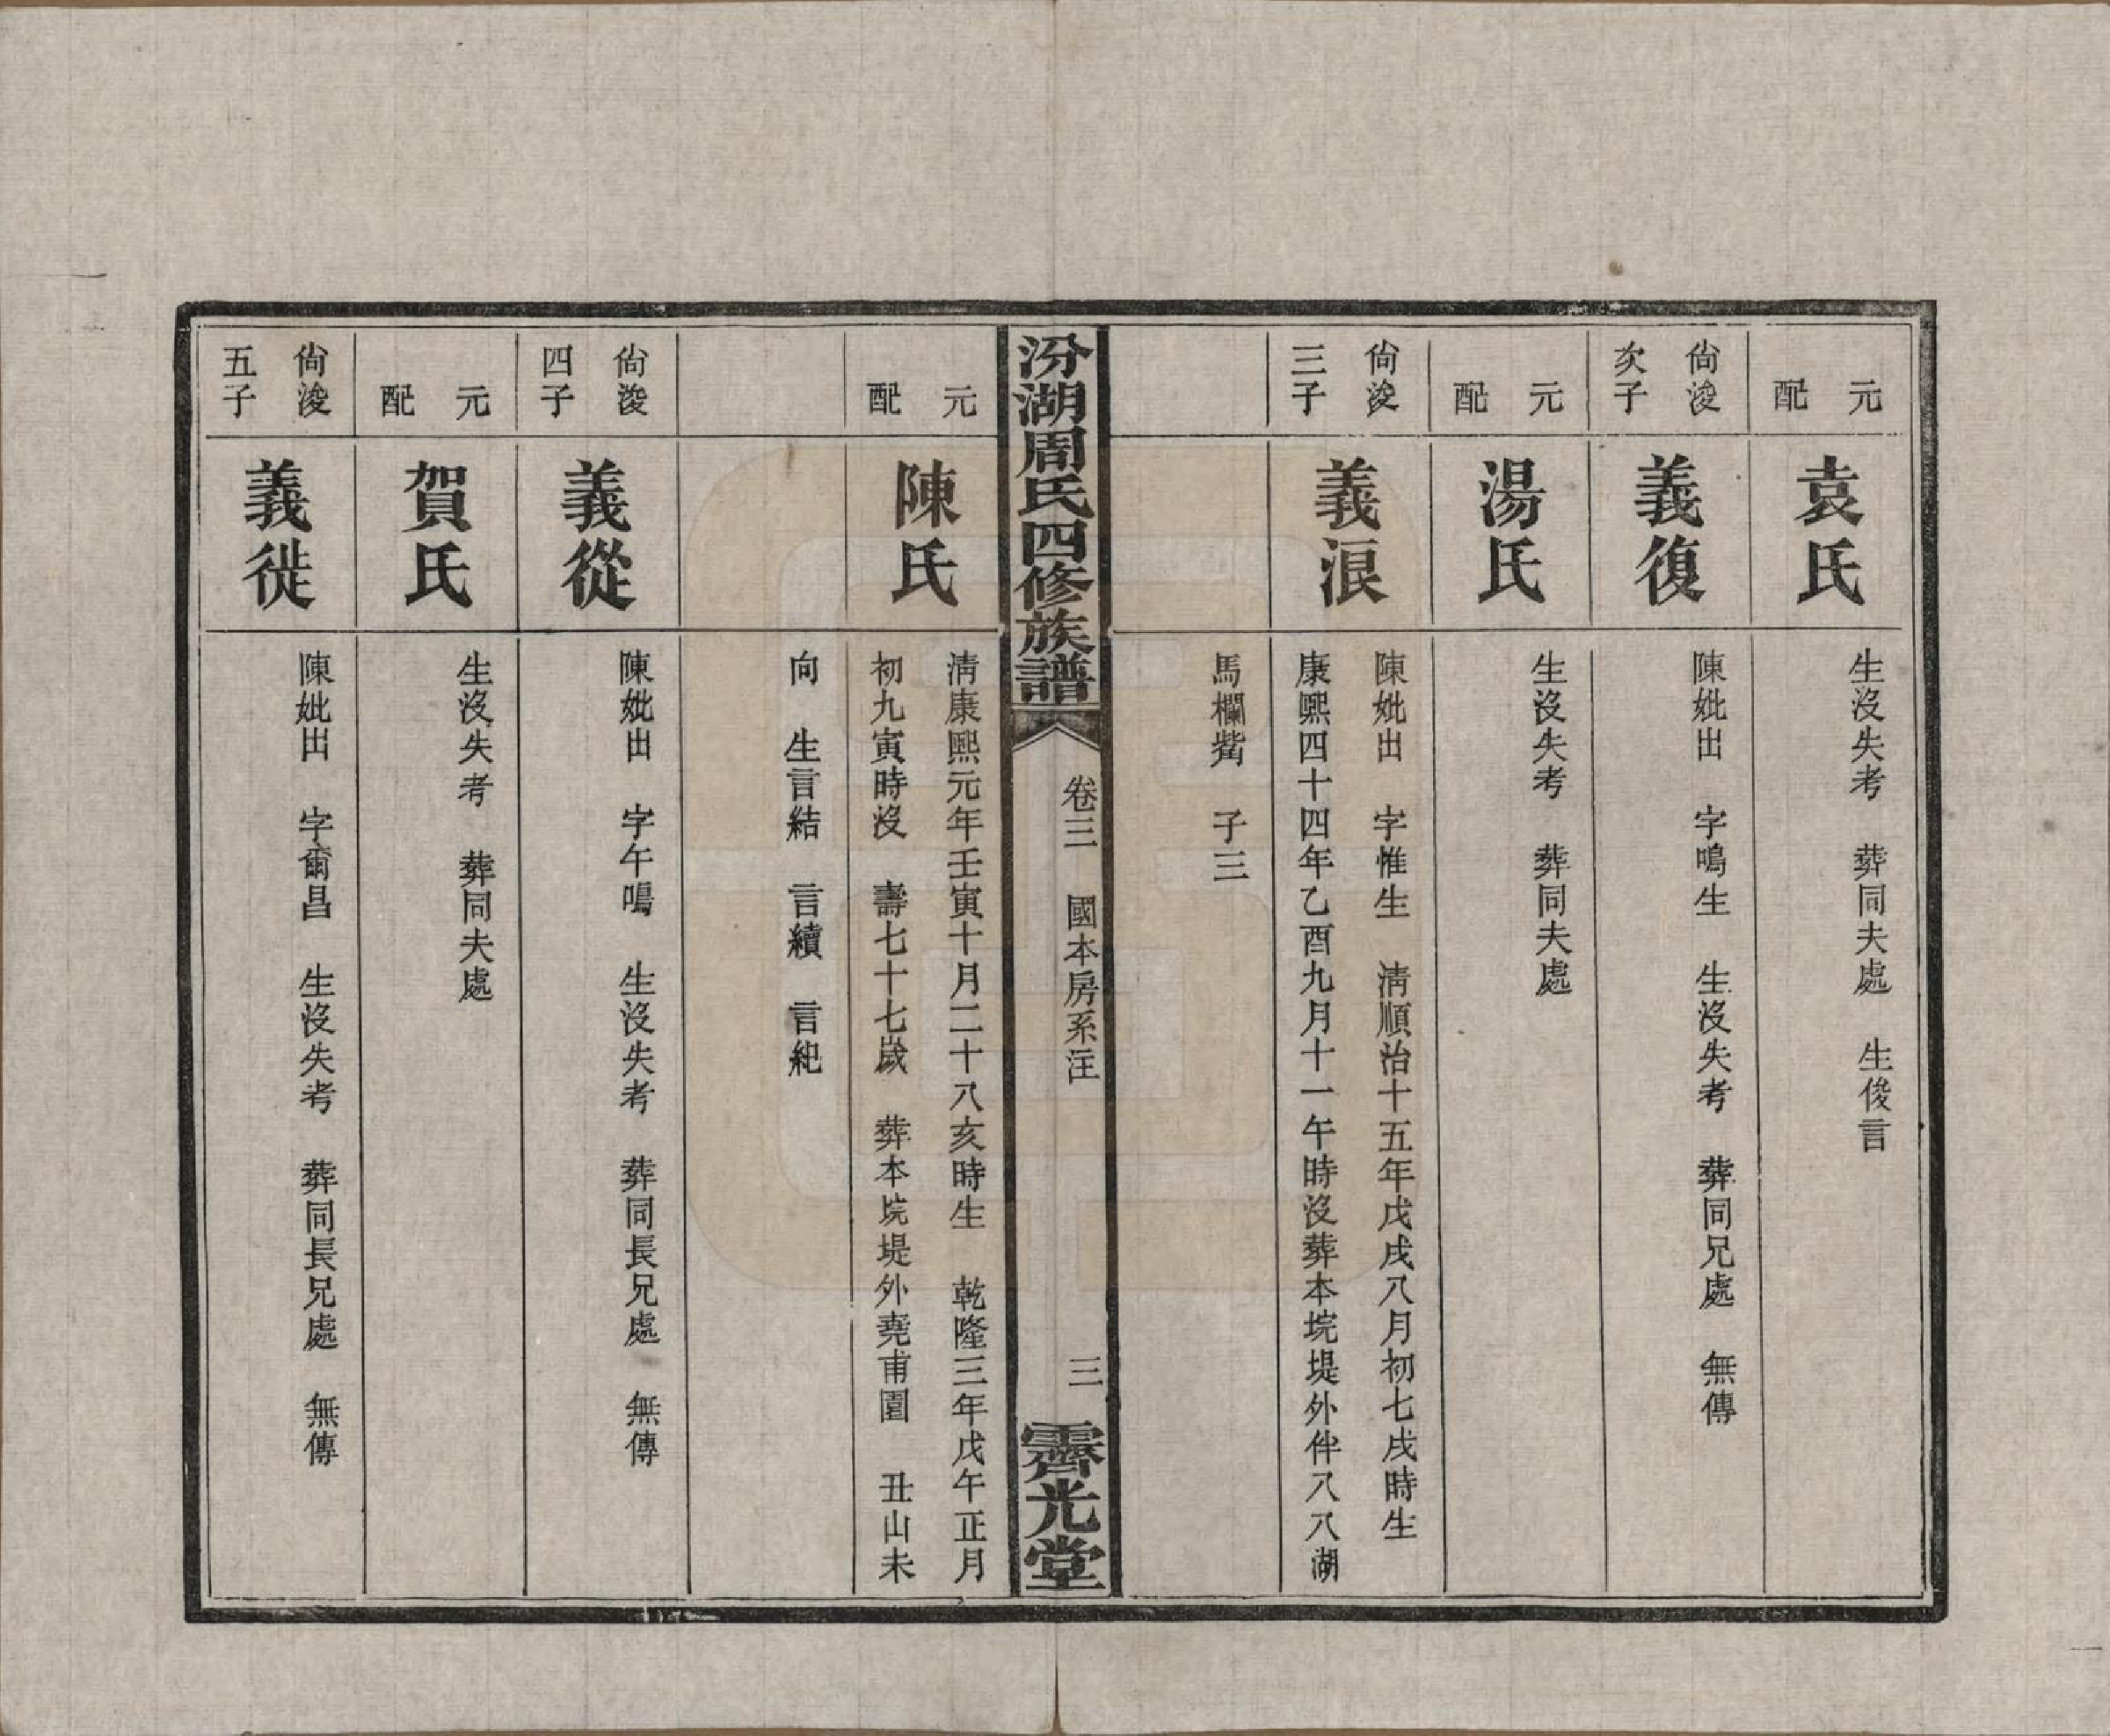 元
配
袁氏
生沒失考　葬同夫處　生俊言
尙浚
次子
義復
陳妣出　字鳴生　生沒失考　葬同兄處　無傳
元
配
湯氏
生沒失考　葬同夫處
尙浚
三子
義泿
陳妣出　字惟生　淸順治十五年戊戌八月初七戌時生
康熙四十四年乙酉九月十一午時沒葬本垸堤外伴八八湖
馬欄觜　子三
汾湖周氏四修族譜
卷三　國本房系注
三
霽光堂
元
配
陳氏
淸康熙元年壬寅十月二十八亥時生　乾隆三年戊午正月
初九寅時沒　壽七十七歲　葬本垸堤外堯甫園　丑山未
向　生言結　言續　言紀
尙浚
四子
義從
陳妣出　字午鳴　生沒失考　葬同長兄處　無傳
元
配
賀氏
生沒失考　葬同夫處
尙浚
五子
義徙
陳妣出　字爾昌　生沒失考　葬同長兄處　無傳